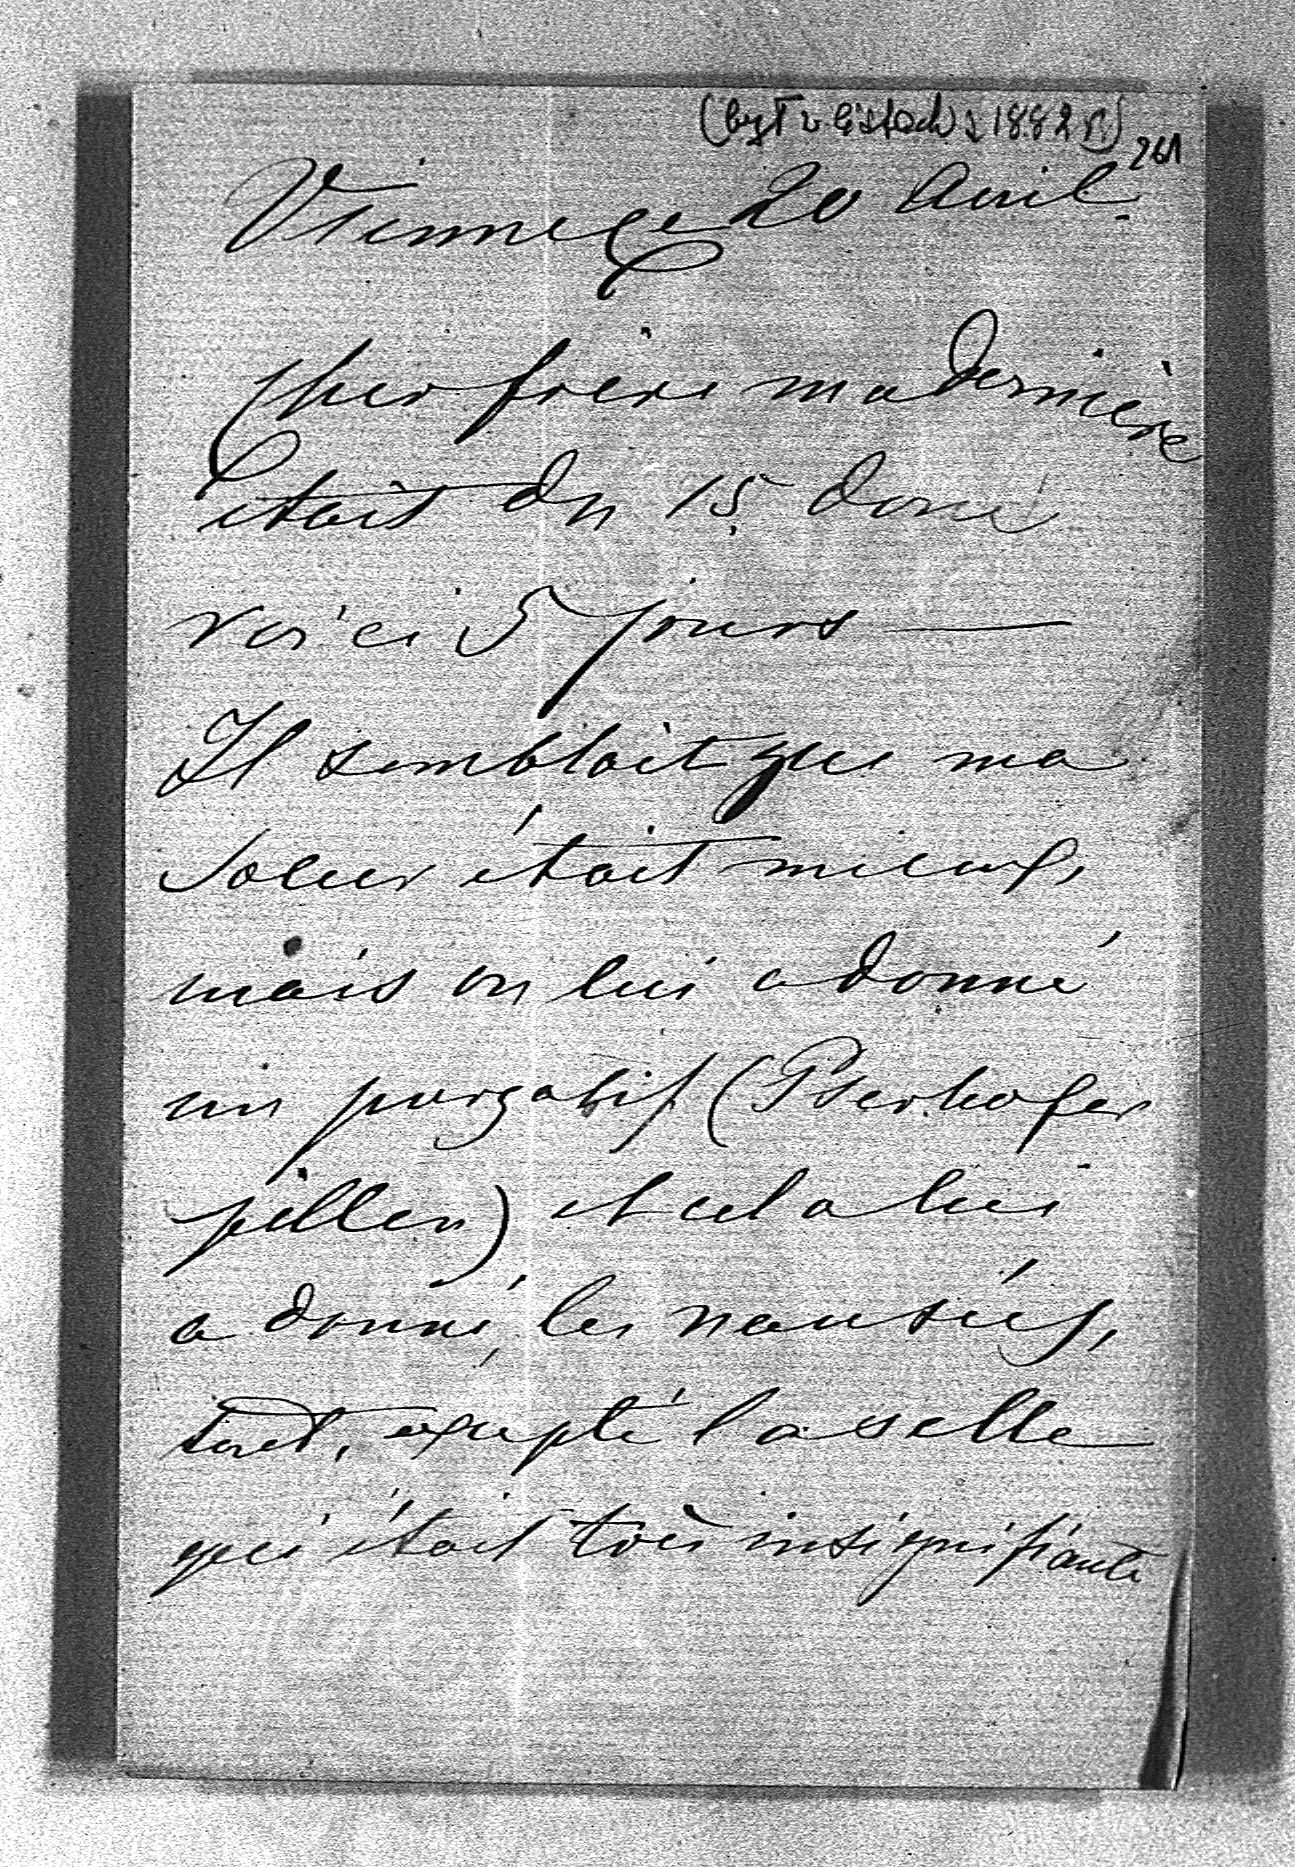 (był w listach z 1882 r.)
261
Vienne ce 20 Avril.
Cher frère ma dernière
était du 15, donc
voici 5 jours —
Il semblait que ma
Soeur était mieux,
mais on lui a donné
un purgatif (Pserhofer
pillen) et cela lui
a donné, les nauseés,
tout, excepté la selle
qui était très insignifiante